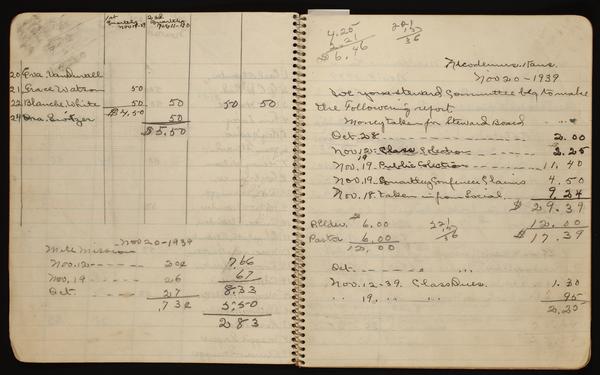 1st Quarterly Nov 19-39
2nd Quarterly Feb 11-40
20 Eva VanDuvall
21 Grace Watson 50
22 Blanche White 50 50 50 50
$4.50
24 Ona Switzer 50
$5.50
Nov 20-1939
Mite Mission
Nov. 12 - - - - - 20¢
Nov, 19 - - - - 26
Oct. - - - - - 27
.73¢
7.66
67
8.33
5.50
2 8 3
4.25
2.21
$6.46
221
15
36
Nicodemus, Kans.
Nov 20-1939
We your Steward Committee beg to make
the Following report
Money taken for Steward Board
Oct. 28 - - - - - - - - - 2.00
Nov, 12 - Class Collection - - - - 2.25
19
Nov. 19 - Public Collection - - - - - 11.40
Nov, 19. Quarterly Conference Claims 4.50
Nov. 18. taken in from Social - - - 9.24
$ 29.39
12.00
$ 17.39
P. Elder. $ 6.00
Pastor 6.00
12,00
221
15
36
Oct. - - - - - - " "
Nov. 12-39. Class Dues. 1.30
" 19. " " 95
2.25